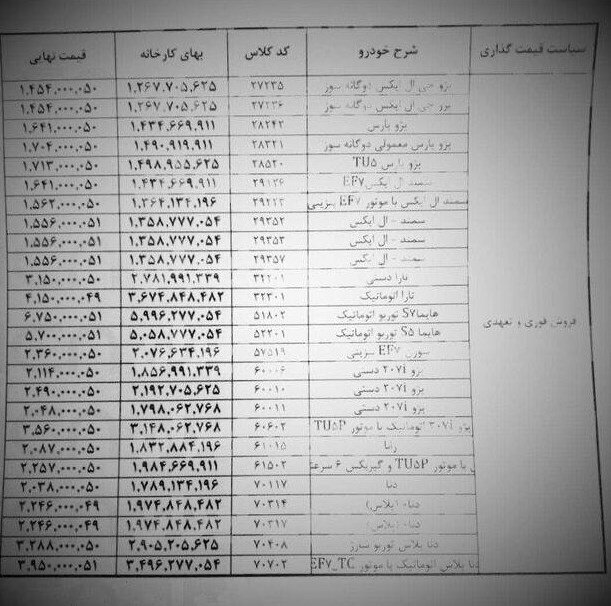 سیاست قیمت گذاری شرح خودرو کد کلاس بهای کارخانه قیمت نهایی
پژو جی ال ایکس دوگانه سوز ۲۷۲۳۵ ۱.۲۶۷.۷۰۵.۶۲۵ ۱.۴۵۴.۰۰۰.۰۵۰
پژو جی ال ایکس دوگانه سوز ۲۷۲۳۶ ۱.۲۶۷.۷۰۵.۶۲۵ ۱.۴۵۴.۰۰۰.۰۵۰
پژو پارس ۲۸۲۴۲ ۱.۴۳۴.۶۶۹.۹۱۱ ۱.۶۴۱.۰۰۰.۰۵۰
پژو پارس معمولی دوگانه سوز ۲۸۳۲۱ ۱.۴۹۰.۹۱۹.۹۱۱ ۱.۷۰۴.۰۰۰.۰۵۰
پژو پارس TU۵ ۲۸۵۲۰ ۱.۴۹۸.۹۵۵.۶۲۵ ۱.۷۱۳.۰۰۰.۰۵۰
سمند ال ایکس EF۷ ۲۹۱۳۶ ۱.۴۳۴.۶۶۹.۹۱۱ ۱.۶۴۱.۰۰۰.۰۵۰
سمند ال ایکس با موتور EF۷ بنزینی ۱.۳۶۴.۱۳۴.۱۹۶ ۱.۵۶۲.۰۰۰.۰۵۰
سمند - ال ایکس ۲۹۳۵۲ ۱.۳۵۸.۷۷۷.۰۵۴ ۱.۵۵۶.۰۰۰.۰۵۱
سمند - ال ایکس ۲۹۳۵۳ ۱.۳۵۸.۷۷۷.۰۵۴ ۱.۵۵۶.۰۰۰.۰۵۱
سمند - ال ایکس ۲۹۳۵۷ ۱.۳۵۸.۷۷۷.۰۵۴ ۱.۵۵۶.۰۰۰.۰۵۱
تارا دستی ۳۲۲۰۱ ۲.۷۸۱.۹۹۱.۳۳۹ ۳.۱۵۰.۰۰۰.۰۵۰
تارا اتوماتیک ۳۲۳۰۱ ۳.۶۷۴.۸۴۸.۴۸۲ ۴.۱۵۰.۰۰۰.۰۴۹
فروش فوری و تعهدی هایما S۷ توربو اتوماتیک ۵۱۸۰۲ ۵.۹۹۶.۲۷۷.۰۵۴ ۶.۷۵۰.۰۰۰.۰۵۱
هایما S۵ توربو اتوماتیک ۵۲۲۰۱ ۵.۰۵۸.۷۷۷.۰۵۴ ۵.۷۰۰.۰۰۰.۰۵۱
سورن EF۷ بنزینی ۵۷۵۱۹ ۲.۰۷۶.۶۳۴.۱۹۶ ۲.۳۶۰.۰۰۰.۰۵۰
پژو ۲۰۷i دستی ۶۰۰۰۶ ۱.۸۵۶.۹۹۱.۳۳۹ ۲.۱۱۴.۰۰۰.۰۵۰
پژو ۲۰۷i دستی ۶۰۰۱۰ ۲.۱۹۲.۷۰۵.۶۲۵ ۲.۴۹۰.۰۰۰.۰۵۰
پژو ۲۰۷i دستی ۶۰۰۱۱ ۱.۷۹۸.۰۶۲.۷۶۸ ۲.۰۴۸.۰۰۰.۰۵۰
پژو ۲۰۷i اتوماتیک با موتور TU۵P ۶۰۶۰۲ ۳.۱۴۸.۰۶۲.۷۶۸ ۳.۵۶۰.۰۰۰.۰۵۰
رانا ۶۱۰۱۵ ۱.۸۳۲.۸۸۴.۱۹۶ ۲.۰۸۷.۰۰۰.۰۵۰
با موتور TU۵P و گیربکس ۶ سرعته ۶۱۵۰۲ ۱.۹۸۴.۶۶۹.۹۱۱ ۲.۲۵۷.۰۰۰.۰۵۰
دنا ۷۰۱۱۷ ۱.۷۸۹.۱۳۴.۱۹۶ ۲.۰۳۸.۰۰۰.۰۵۰
دنا+ (پلاس) ۷۰۳۱۴ ۱.۹۷۴.۸۴۸.۴۸۲ ۲.۲۴۶.۰۰۰.۰۴۹
دنا+ (پلاس) ۷۰۳۱۷ ۱.۹۷۴.۸۴۸.۴۸۲ ۲.۲۴۶.۰۰۰.۰۴۹
دنا پلاس توربو شارژ ۷۰۴۰۸ ۲.۹۰۵.۲۰۵.۶۲۵ ۳.۲۸۸.۰۰۰.۰۵۰
دنا پلاس اتوماتیک با موتور EF۷_TC ۷۰۷۰۲ ۳.۴۹۶.۲۷۷.۰۵۴ ۳.۹۵۰.۰۰۰.۰۵۱